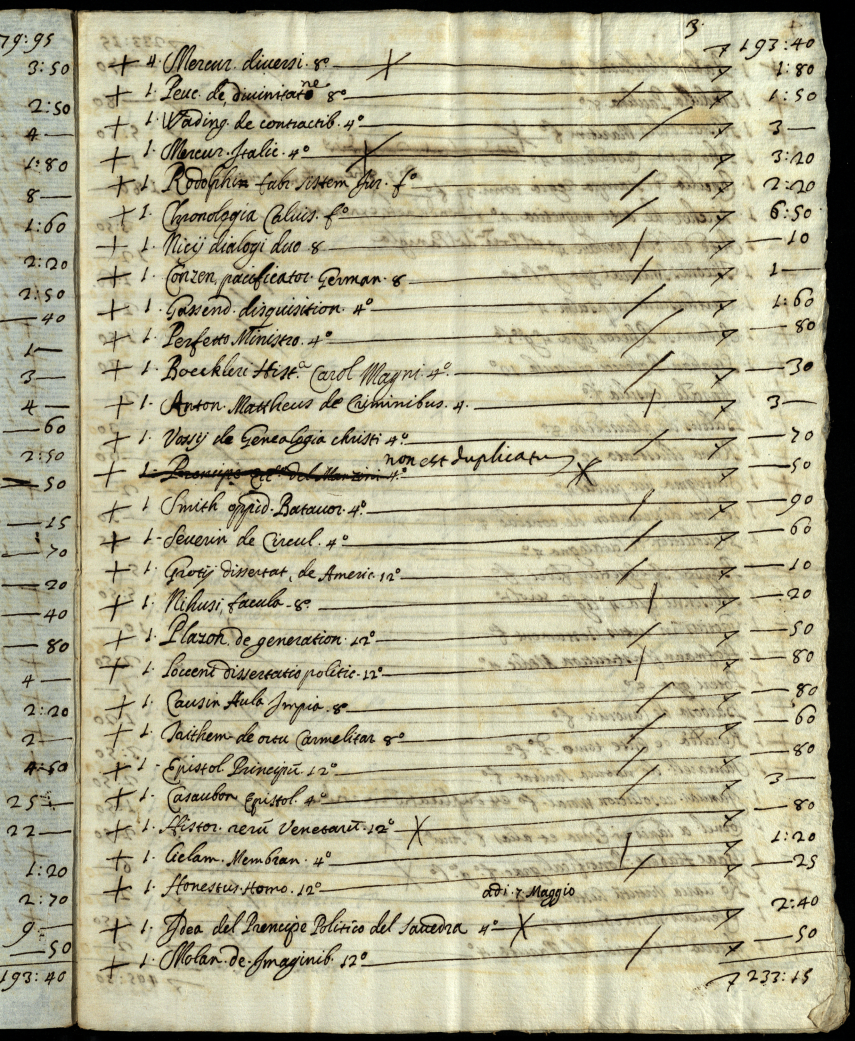 79:95
3:50
2:50
4 —
1:80
8 —
1:60
2:20
2:50
— 40
1 —
3 —
4 —
— 60
2:50
— 50
— 15
— 70
— 20
— 40
— 80
4 —
2:20
2 —
4:50
25 —
22 —
1:20
2:70
9 —
— 50
193:40
3.
193:40
+ 4. Mercur. diversi. 8º 1:80
+ 1. Peuc. de divinitatone 8º 1:50
+ 1. Wading. de contractib. 4º 3 —
+ 1. Mercur. Italic. 4º 3:20
+ 1. Rodolphin fabr. sistem Jur. fº 2:20
+ 1. Chronologia Calvis. fº 6:50
+ 1. Nicij dialogi duo. 8 — 10
+ 1. Conzen, pacificator. German. 8 1 —
+ 1. Gassend. disquisition. 4º 1:60
+ 1. Perfetto Ministro. 4º — 80
+ 1. Boeckleri Hist.a Carol Magni. 4º — 30
+ 1. Anton. Mattheus de Criminibus. 4. 3 —
+ 1. Vossij de Genealogia christi 4º — 70
1. del Manzini 4º non est duplicatu — 50
+ 1 Smith oppid. Batavor. 4º — 90
+ 1 - Severin de Circul. 4º — 60
+ 1. Grotij dissertat. de Americ. 12º — 10
+ 1. Nihusi, facula. 8º — 20
+ 1. Plazon. de generation. 12º — 50
+ 1. Locceni dissertatio politic. 12º — 80
+ 1. Causin Aula Impia. 8º — 80
+ 1. Trithem. de ortu Carmelitar 8º — 60
+ 1. Epistol. Principū. 12º — 80
+ 1. Casaubon Epistol. 4º 3 —
+ 1. Histor. rerū Venetarū. 12º — 80
+ 1. Membran. 4º 1:20
+ 1. Honestus. Homo. 12º — 25
adi. 7. Maggio
+ 1. Idea del Prencipe Politico del Savedra 4º 2:40
+ 1. Molan. de. Imaginib. 12º — 50
233:15